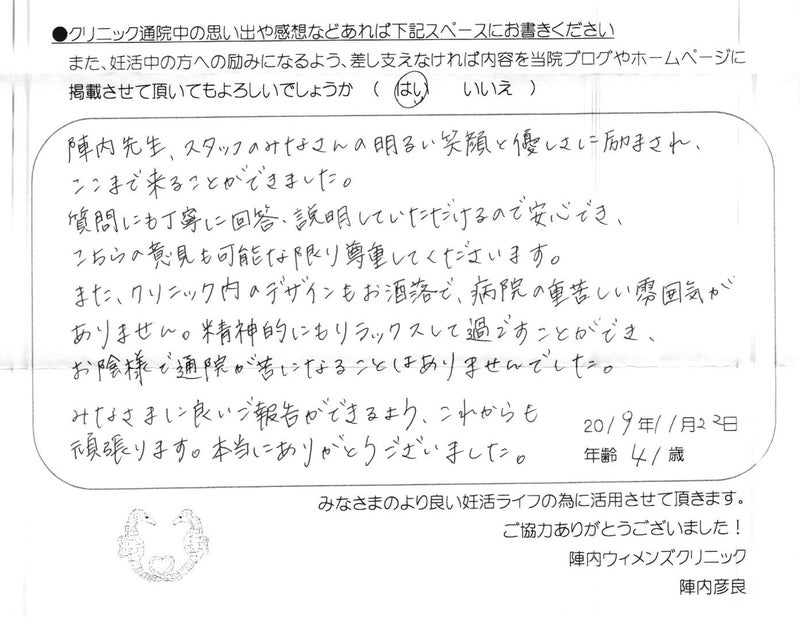 ●クリニック通院中の思い出や感想などあれば下記スペースにお書きください
また、妊活中の方への励みになるよう、差し支えなければ内容を当院ブログやホームページに
掲載させて頂いてもよろしいでしょうか ( はい いいえ )
陣内先生、スタッフのみなさんの明るい笑顔と優しさに励まされ、
ここまで来ることができました。
質問にも丁寧に回答、説明していただけるので安心でき、
こちらの意見も可能な限り尊重してくださいます。
また、クリニック内のデザインもお洒落で、病院の重苦しい雰囲気が
ありません。精神的にもリラックスして過ごすことができ、
お陰様で通院が苦になることはありませんでした。
みなさまに良いご報告ができるよう、これからも
頑張ります。本当にありがとうございました。
2019年11月22日
年齢 41歳
みなさまのより良い妊活ライフの為に活用させて頂きます。
ご協力ありがとうございました！
陣内ウィメンズクリニック
陣内彦良